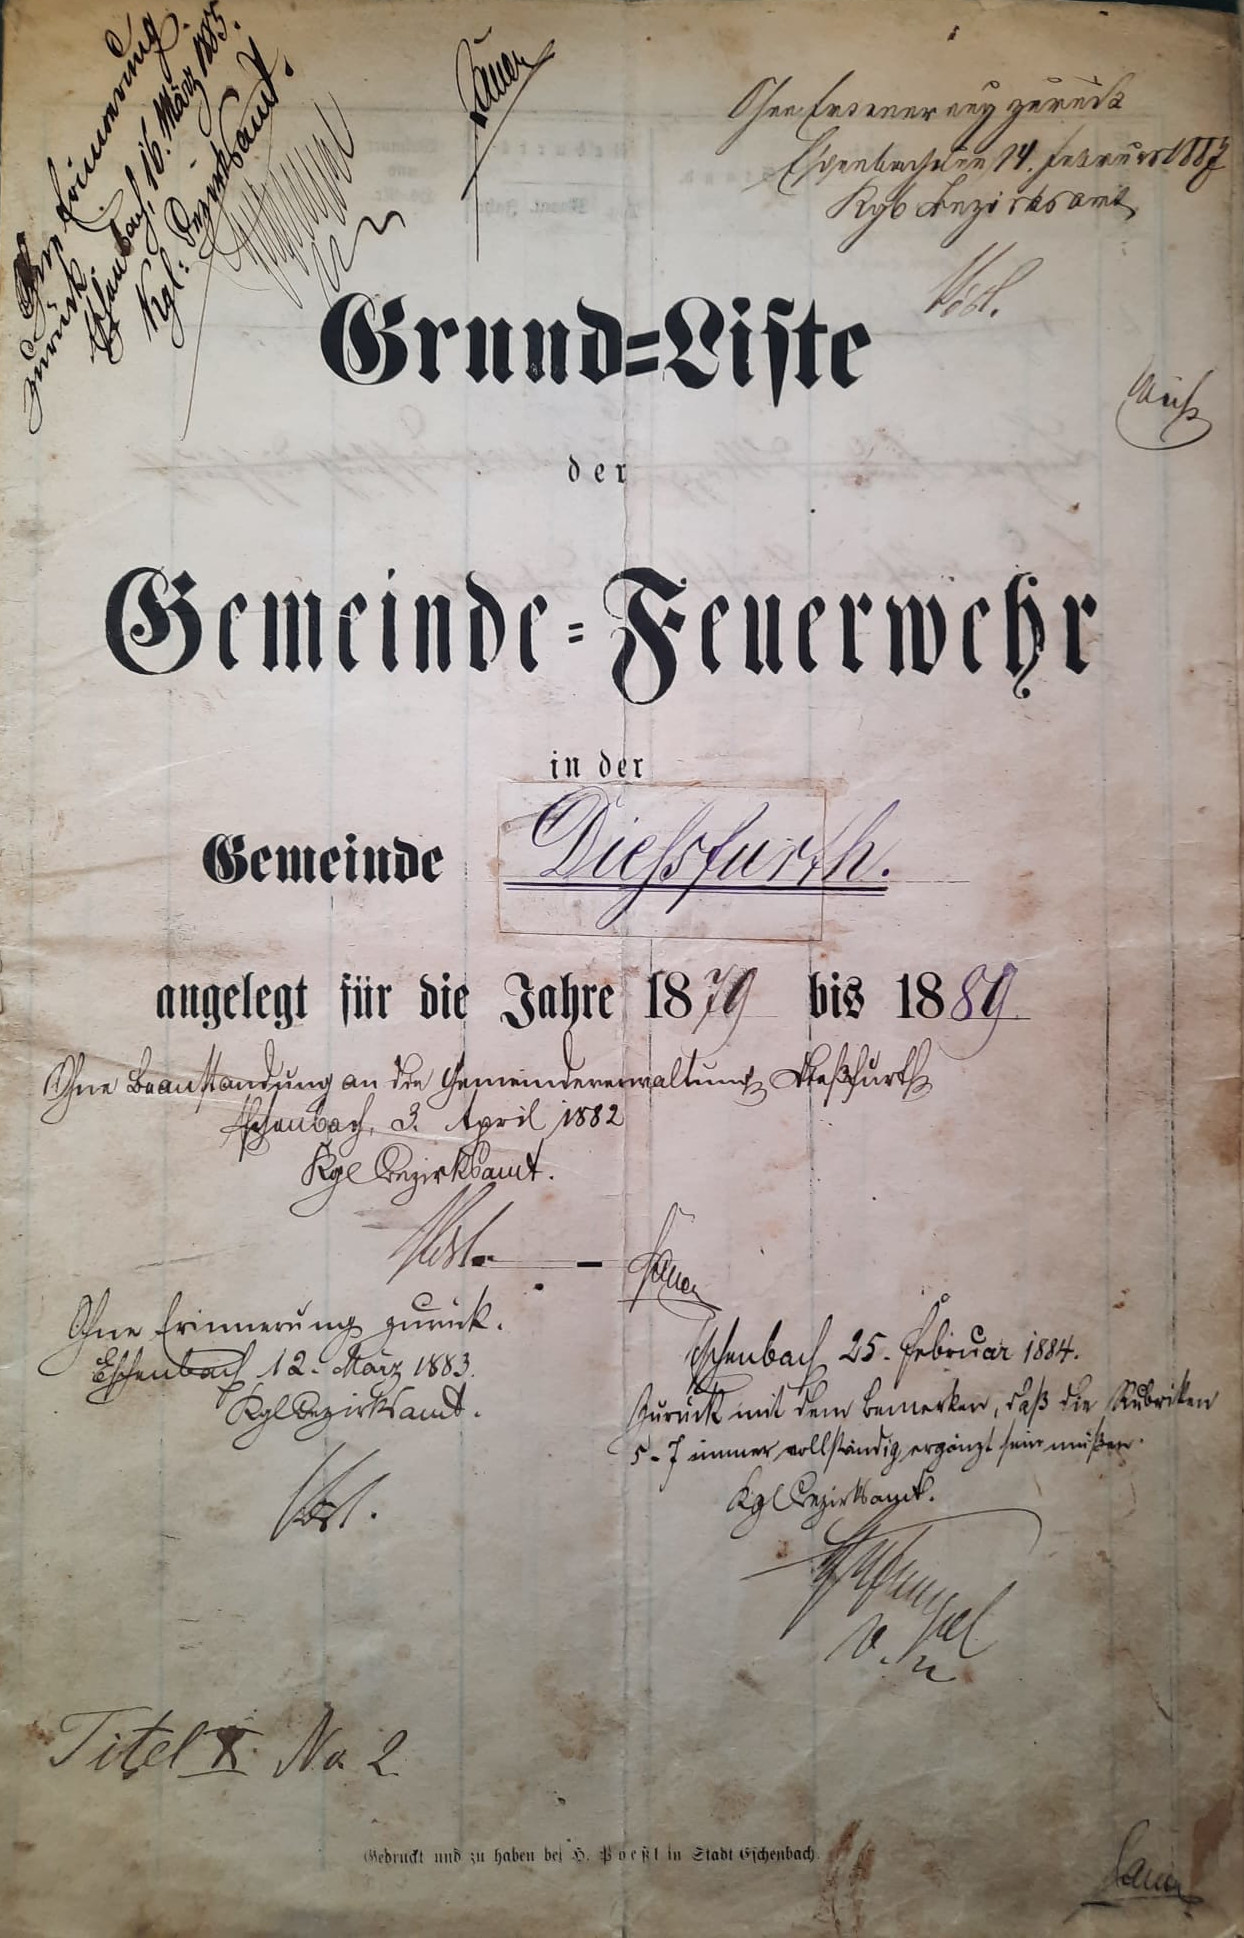 Ohne Erinnerung
zurück
Eschenbach, 16. März 1885.
Kgl: Bezirksamt.
Sauer
Ohne Erinnerung zurück
Eschenbach den 14. Februar 1887
Kgl Bezirksamt
Grund=Liste
der
Gemeinde=Feuerwehr
in der
Gemeinde Diessfurth.
angelegt für die Jahre 1879 bis 1889
Ohne Beanstandung an die Gemeindeverwaltung Dießfurth
Eschenbach, 3. April 1882
Kgl Bezirksamt.
Sauer
Ohne Erinnerung zurück.
Eschenbach 12. März 1883.
Kgl Bezirksamt.
Eschenbach 25. Februar 1884.
Zurück mit dem Bemerken, daß die Rubriken
5-7 immer vollständig ergänzt sein müßen.
Kgl Bezirksamt.
Titel X. No. 2
Gedruckt und zu haben bei H. Poeßl in Stadt Eschenbach.
Sauer